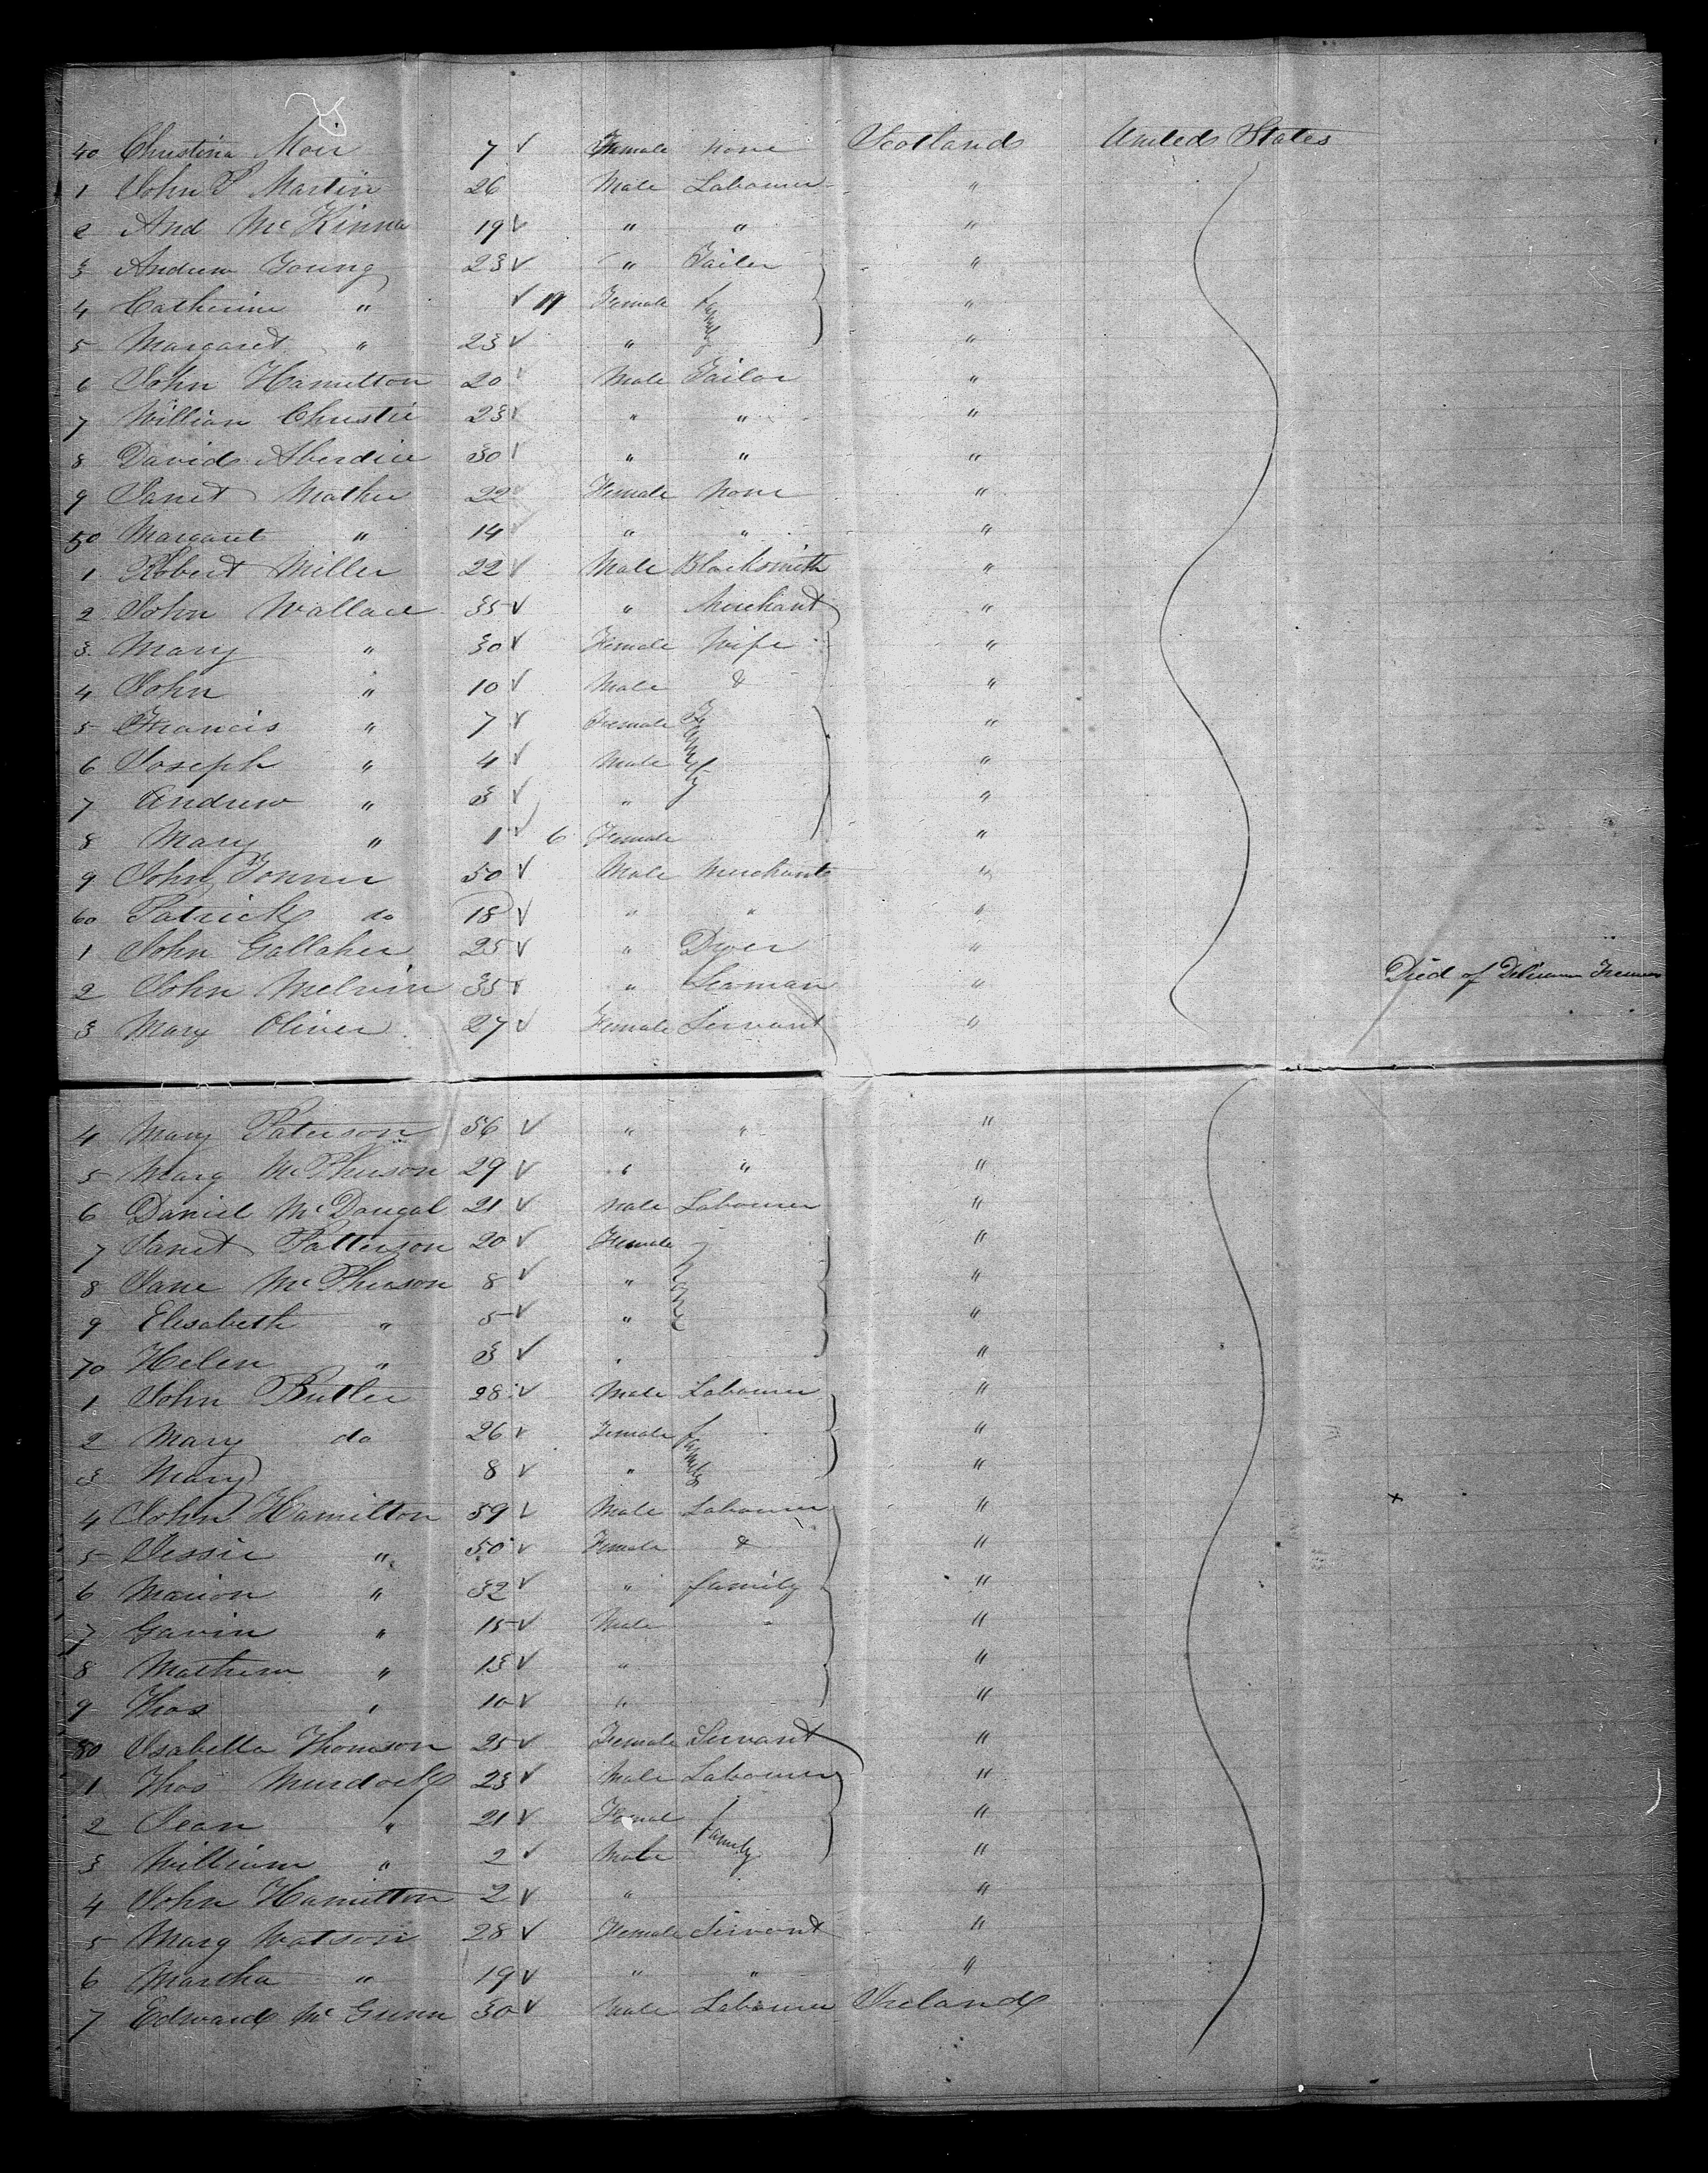 40 Christina Moir 7 ✓ Female none Scotland United States
1 John S Martin 26 Male Labourer "
2 And McKinna 19 ✓ " " "
3 Andrew Young 23 ✓ " Tailer "
4 Catherine " ✓ 11 Female family "
5 Margaret " 23 ✓ " "
6 John Hamilton 20 Male Tailor "
7 William Christie 23 ✓ " " "
8 David Aberdice 30 " " "
9 Janet Mather 22 Female None "
50 Margaret " 14 " " "
1 Robert Miller 22 ✓ Male Blacksmith "
2 John Wallace 35 ✓ " Merchant "
3 Mary " 30 ✓ Female Wife "
4 John " 10 ✓ Male & "
5 Francis " 7 ✓ Female Family "
6 Joseph " 4 ✓ Male "
7 Andrew " 3 ✓ " "
8 Mary " 1 ✓ 6 Female "
9 John Tonner 50 ✓ Male Merchant "
60 Patrick do 18 ✓ " " "
1 John Gallaher 25 ✓ " Dyer "
2 John Melvin 35 ✓ " Seaman " Died of Delirium Tremens
3 Mary Oliver 27 ✓ Female Servant "
4 Mary Paterson 56 ✓ " " "
5 Marg McPherson 29 ✓ " " "
6 Daniel McDougal 21 ✓ Male Labourer "
7 Janet Patterson 20 ✓ Female None "
8 Jane McPherson 8 ✓ " "
9 Elisabeth " 5 ✓ " "
70 Helen " 3 ✓ " "
1 John Butler 28 ✓ Male Labourer "
2 Mary do 26 ✓ Female family "
3 Mary 8 ✓ " "
4 John Hamilton 59 ✓ Male Labourer " x
5 Jessie " 50 ✓ Female & "
6 Marion " 32 ✓ " family "
7 Gavin " 15 ✓ Male "
8 Mathew " 13 ✓ " "
9 Thos " 10 ✓ " "
80 Isabella Thomson 25 ✓ Female Servant "
1 Thos Murdock 23 ✓ Male Labourer "
2 Jean " 21 ✓ Femal family "
3 William " 2 ✓ Male "
4 John Hamilton 2 ✓ " "
5 Marg Watson 28 ✓ Female Servant "
6 Martha " 19 ✓ " " "
7 Edward McGunn 30 ✓ Male Labourer Ireland